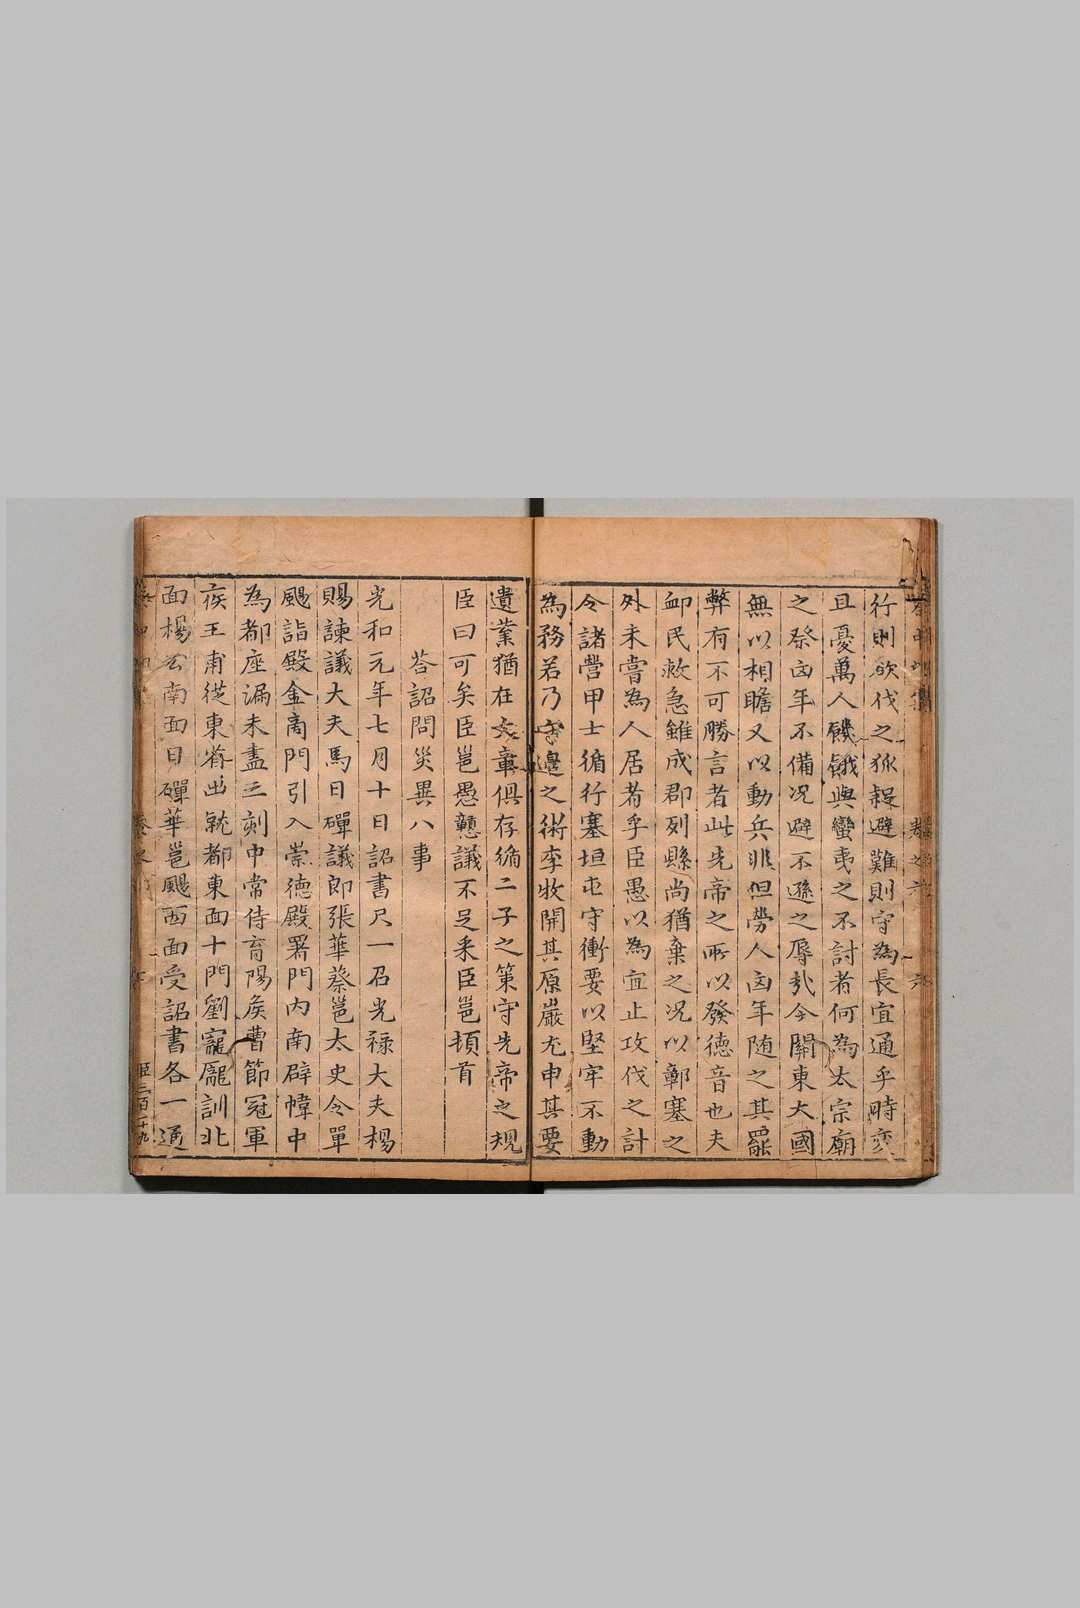 行則欲伐之狄猾避難則守為長宜通乎時変
且憂萬人饑餓與蠻夷之不討者何為太宗廟
之祭凶年不備况避不遜之辱㢤今關東大國
無以相瞻又以動兵非但勞人凶年随之其罷
弊有不可勝言者此先帝之所以發德音也夫
卹民救急雖成郡列縣尚猶棄之况以鄣塞之
外未嘗為人居者乎臣愚以為宜止攻伐之計
令諸營甲士循行塞垣屯守衝要以堅牢不動
為務若乃守邊之術李牧開其原嚴尤申其要
遺業猶在文章俱存循二子之策守先帝之規
臣曰可矣臣邕愚戇議不足采臣邕頓首
荅詔問災異八事
光和元年七月十日詔書尺一召光祿大夫楊
賜諫議大夫馬日磾議郎張華蔡邕太史令單
颺詣殿金商門引入崇德殿署門內南辟幃中
為都座漏未盡三刻中常侍育陽矦曹節冠軍
矦王甫從東省出就都東面十門劉寵龐訓北
面楊公南面日磾華邕颺西面受詔書各一通
卷之六
六